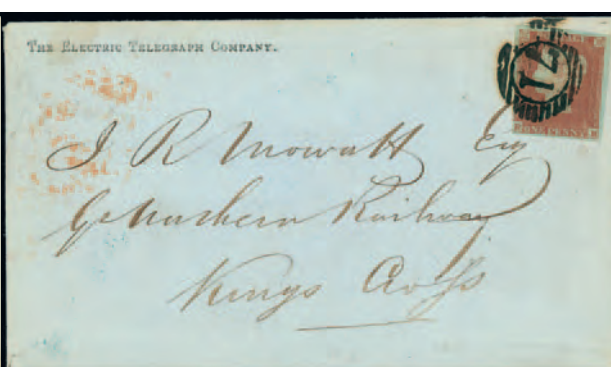 THE ELECTRIC TELEGRAPH COMPANY.
71
ONE PENNY
J R Mowatt Esq
Gt Northern Railway
Kings Cross